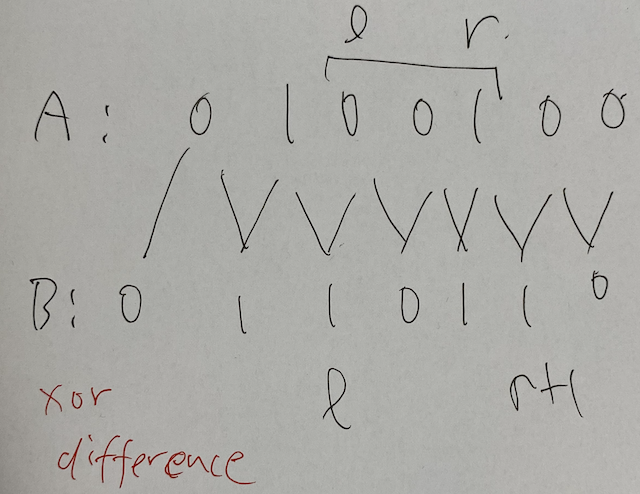 l r.
A: 0 1 0 0 1 0 0
B: 0 1 1 0 1 1 0
l r+1
xor
difference